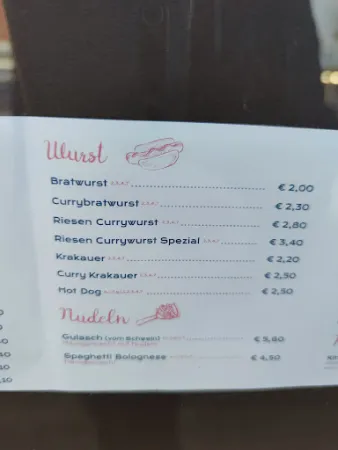 Wurst
Bratwurst 2,3,4,7 € 2,00
Currybratwurst 2,3,4,7 € 2,30
Riesen Currywurst 2,3,4,7 € 2,80
Riesen Currywurst Spezial € 3,40
Krakauer 2,3,4,7 € 2,20
Curry Krakauer 2,3,4,7 € 2,50
Hot Dog € 2,50
Nudeln
Gulasch (vom Schwein) € 5,80
Spaghetti Bolognese € 4,50